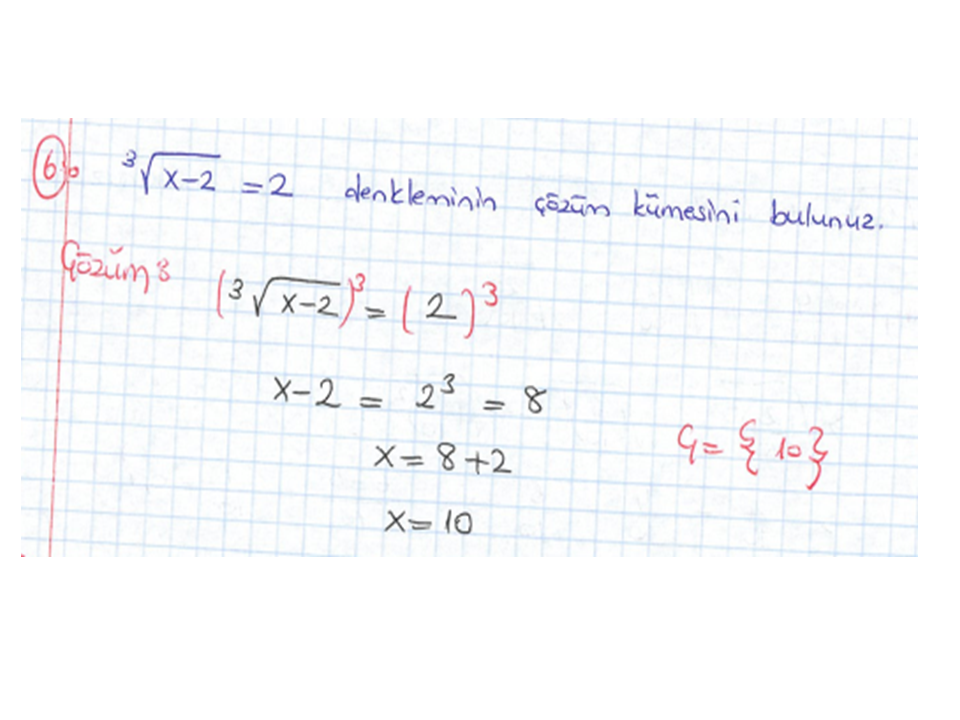 6) ∛(x-2) = 2 denkleminin çözüm kümesini bulunuz.
Çözüm:
(∛(x-2))³ = (2)³
x-2 = 2³ = 8
x = 8+2
x = 10
Ç = {10}